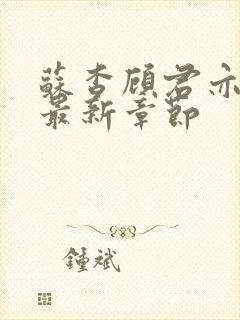 蘇杏顾君亦
最新章節
鍾斌